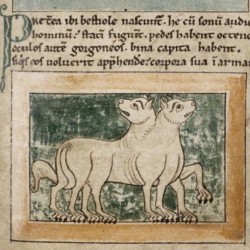 Pretea ibi bestiole nascunt. he cū sonū audier
hominū: statī fugiunt. pedes habent octenos
oculos autē gorgoneos. bina capita habent.
siq̇s eos voluerit apphende: corpora sua ī arma